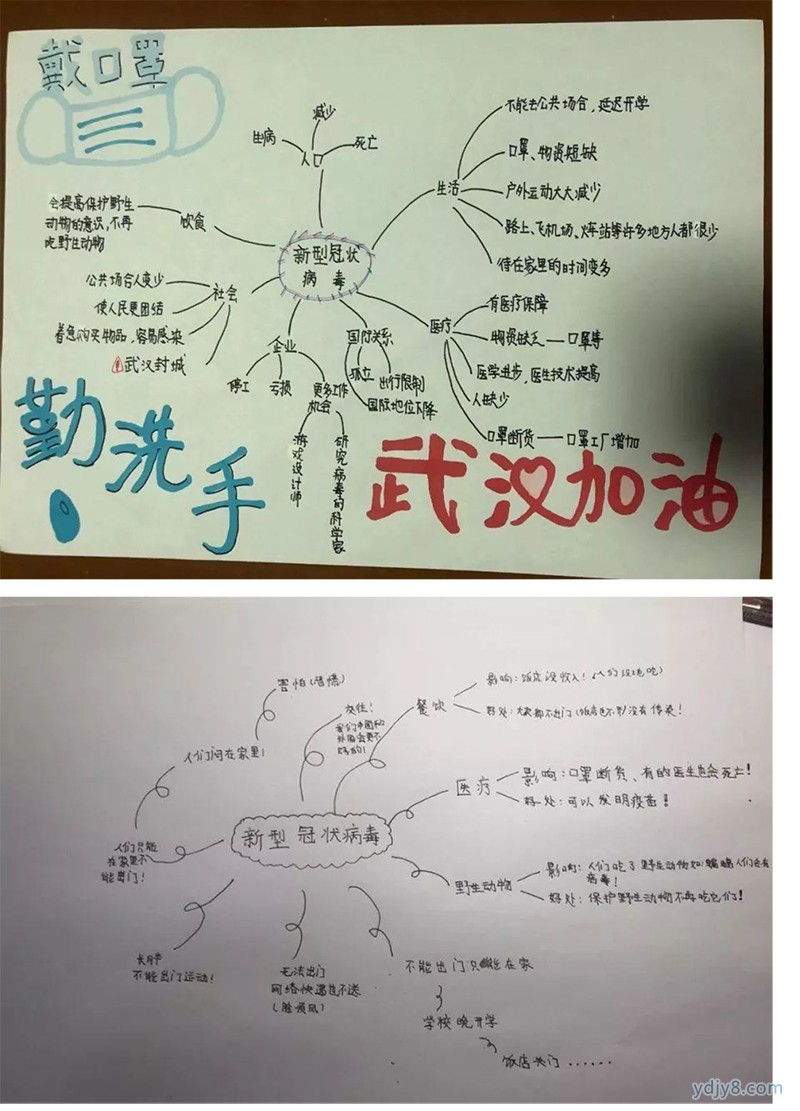 戴口罩
减少
生病
死亡
人口
不能去公共场合,延迟开学
口罩、物资短缺
生活
户外运动大大减少
路上、飞机场、火车站等许多地方人都很少
待在家里的时间变多
会提高保护野生
动物的意识,不再
吃野生动物
饮食
新型冠状
病毒
公共场合人变少
社会
使人民更团结
着急购买物品,容易感染
武汉封城
企业
停工
亏损
更多工作
机会
游戏设计师
研究病毒的科学家
国际关系
孤立
出行限制
国际地位下降
医疗
有医疗保障
物资缺乏——口罩等
医学进步,医生技术提高
人缺少
口罩断货——口罩工厂增加
勤洗手
武汉加油
害怕(恐慌)
人们闷在家里!
人们只能
在家里不
能出门!
交往!
我们中国和
外国会更不
好的!
餐饮
影响:饭店没收入!
好处:大家都不出门
没有传染!
新型冠状病毒
医疗
影响:口罩断货、有的医生也会死亡!
好处:可以发明疫苗!
野生动物
影响:人们吃了野生动物如:蝙蝠人们会有
病毒!
好处:保护野生动物不再吃它们!
不能出门运动!
无法出门
网络快递也不送
不能出门只能在家
学校晚开学
饭店关门……
ydjy8.com